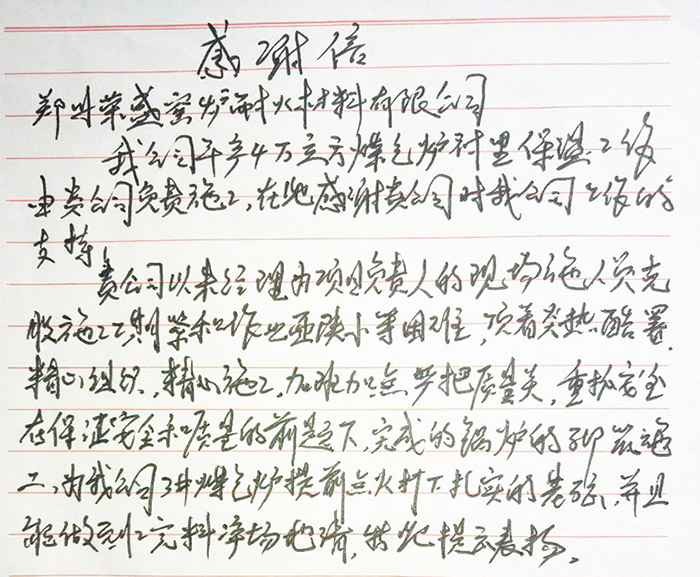 感谢信
郑州荣盛窑炉耐火材料有限公司
我公司年产4万立方煤气炉衬里保温工作
由贵公司负责施工,在此感谢贵公司对我公司工作的
支持!
贵公司以朱经理为项目负责人的现场施工人员克
服施工工期紧和作业面狭小等困难,顶着炎热酷署,
精心组织,精心施工,加班加点严把质量关,重抓安全
在保证安全和质量的前题下,完成的锅炉的砌筑施
工,为我公司3#煤气炉提前点火打下扎实的基础,并且
能做到工完料净场地清,特此提示表扬。